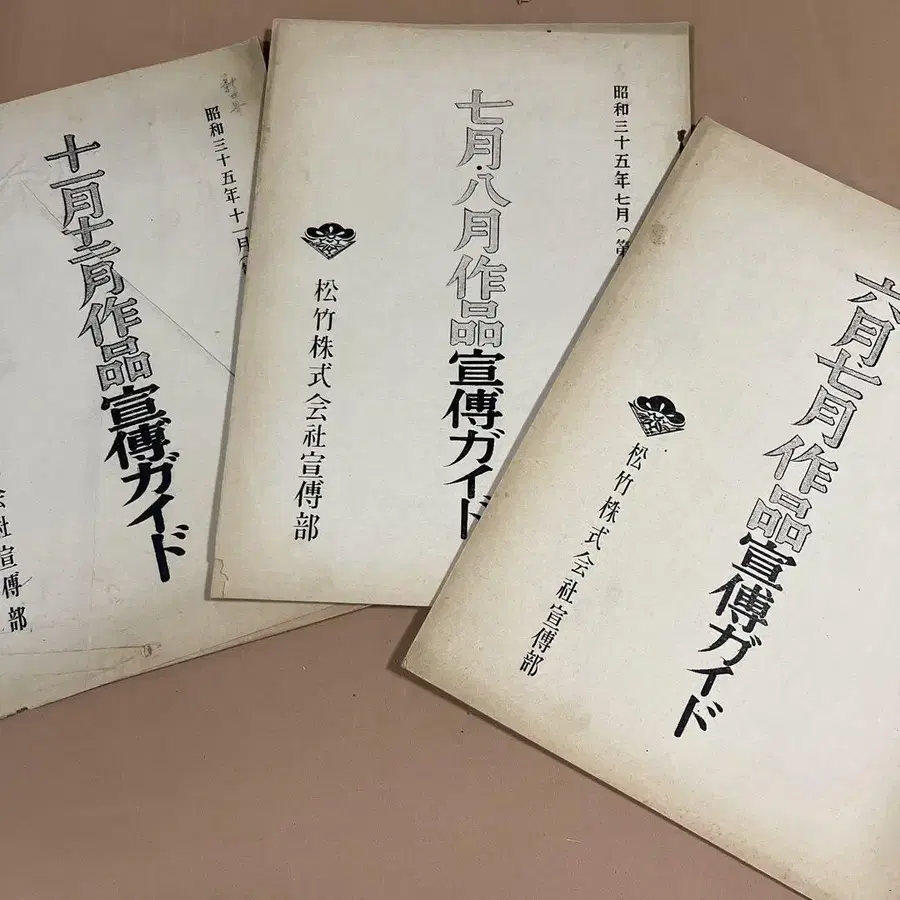 昭和三十五年十一月(
十一月十二月作品宣傳ガイド
会社宣傳部
昭和三十五年七月(第
七月・八月作品宣傳ガイド
松竹株式会社宣傳部
六月・七月作品宣傳ガイド
松竹株式会社宣傳部